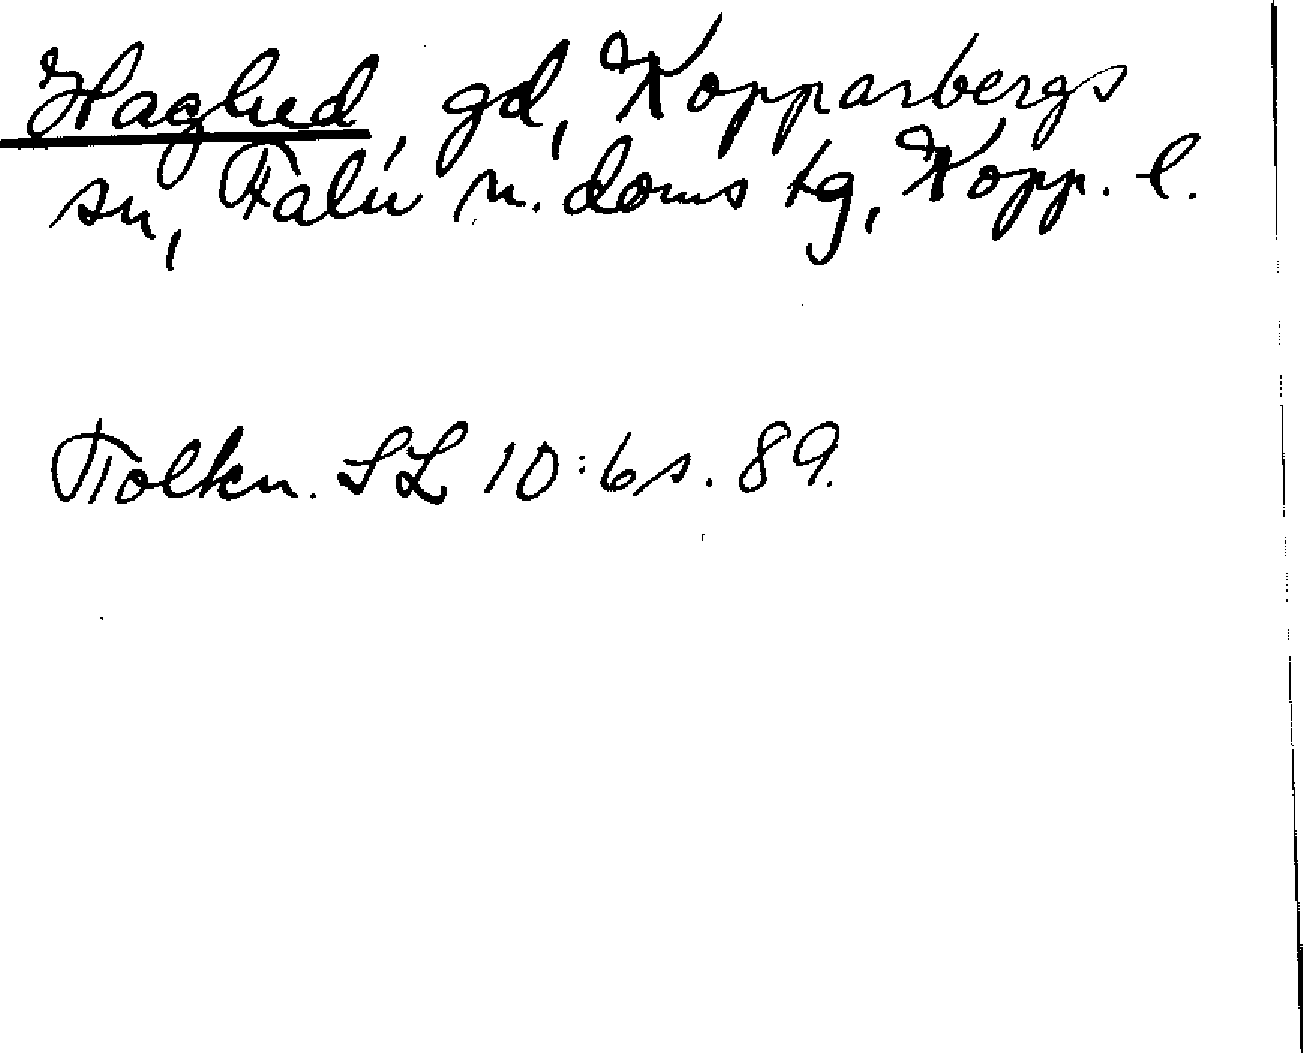 Haghed, gd, Kopparbergs
sn, Falu n. doms tg, Kopp. l.
Folkn. SL 10:6 s. 89.